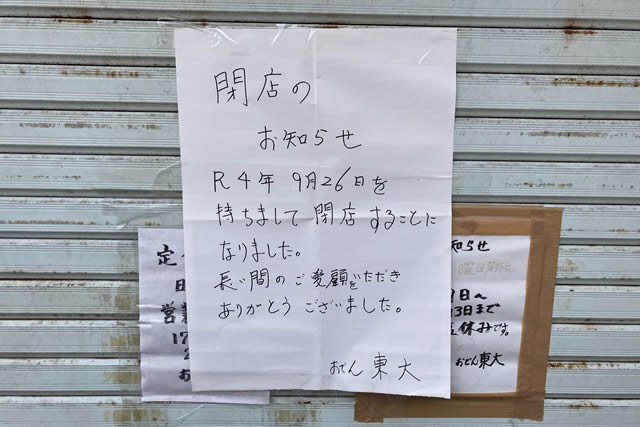 閉店の
お知らせ
R4年 9月26日を
持ちまして閉店することに
なりました。
長い間のご愛顧をいただき
ありがとうございました。
おでん 東大
定
営業
17
知らせ
9日～
3日まで
休みです。
おでん東大